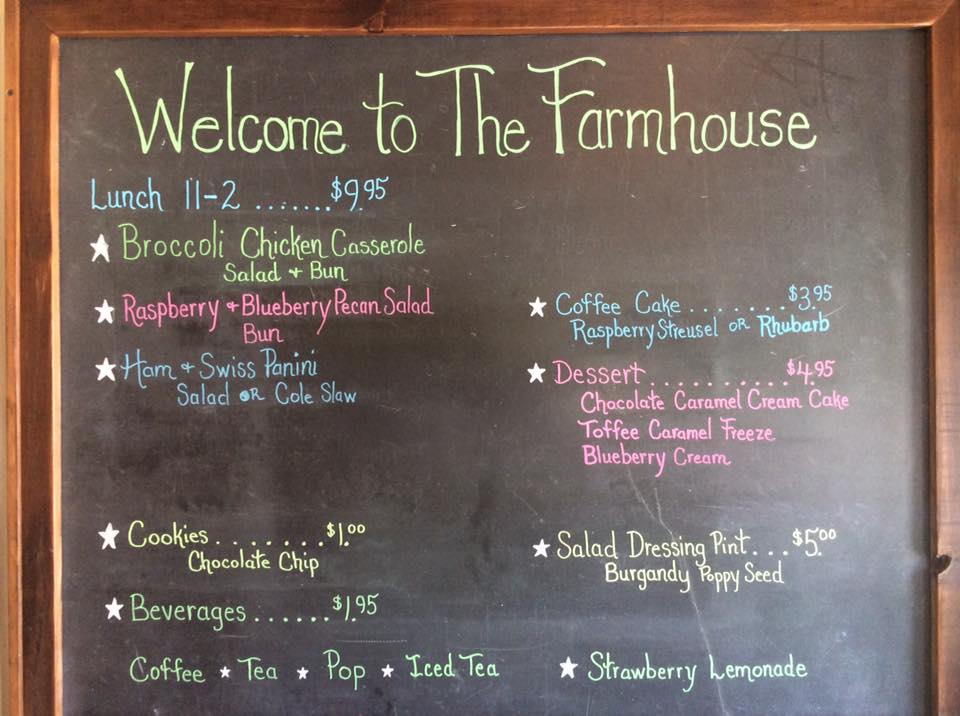 Welcome to The Farmhouse
Lunch 11-2 .......$9.95
Broccoli Chicken Casserole
Salad + Bun
Raspberry + Blueberry Pecan Salad
Bun
Ham + Swiss Panini
Salad OR Cole Slaw
Coffee Cake ........$3.95
Raspberry Streusel OR Rhubarb
Dessert..........$4.95
Chocolate Caramel Cream Cake
Toffee Caramel Freeze
Blueberry Cream
Cookies .......$1.00
Chocolate Chip
Salad Dressing Pint...$5.00
Burgandy Poppy Seed
Beverages ......$1.95
Coffee ★ Tea ★ Pop ★ Iced Tea ★ Strawberry Lemonade